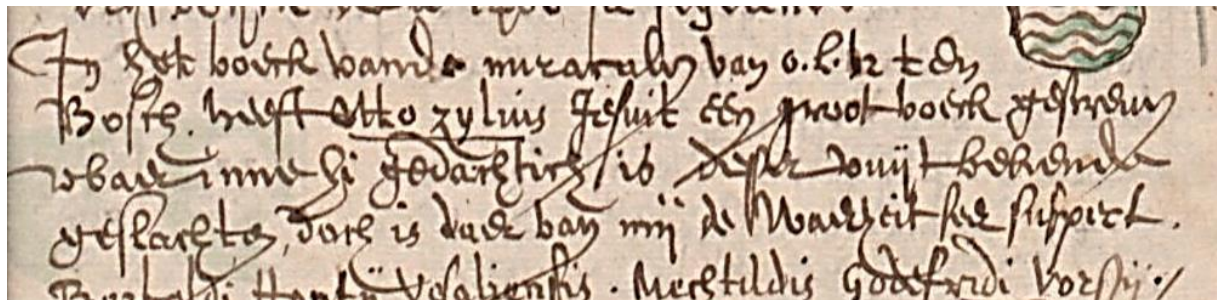 In het boeck vande miraculen van o.l.vr ten
Bosch. heeft Otto zylius Jesuit een groot boeck geschreven
waer inne hi gedachtich is deser vuijt bekende
geslachten, doch is daer van mij de Waerheit seer suspect.
Vesaliensis. Mechtildis Godefridi Vorstij